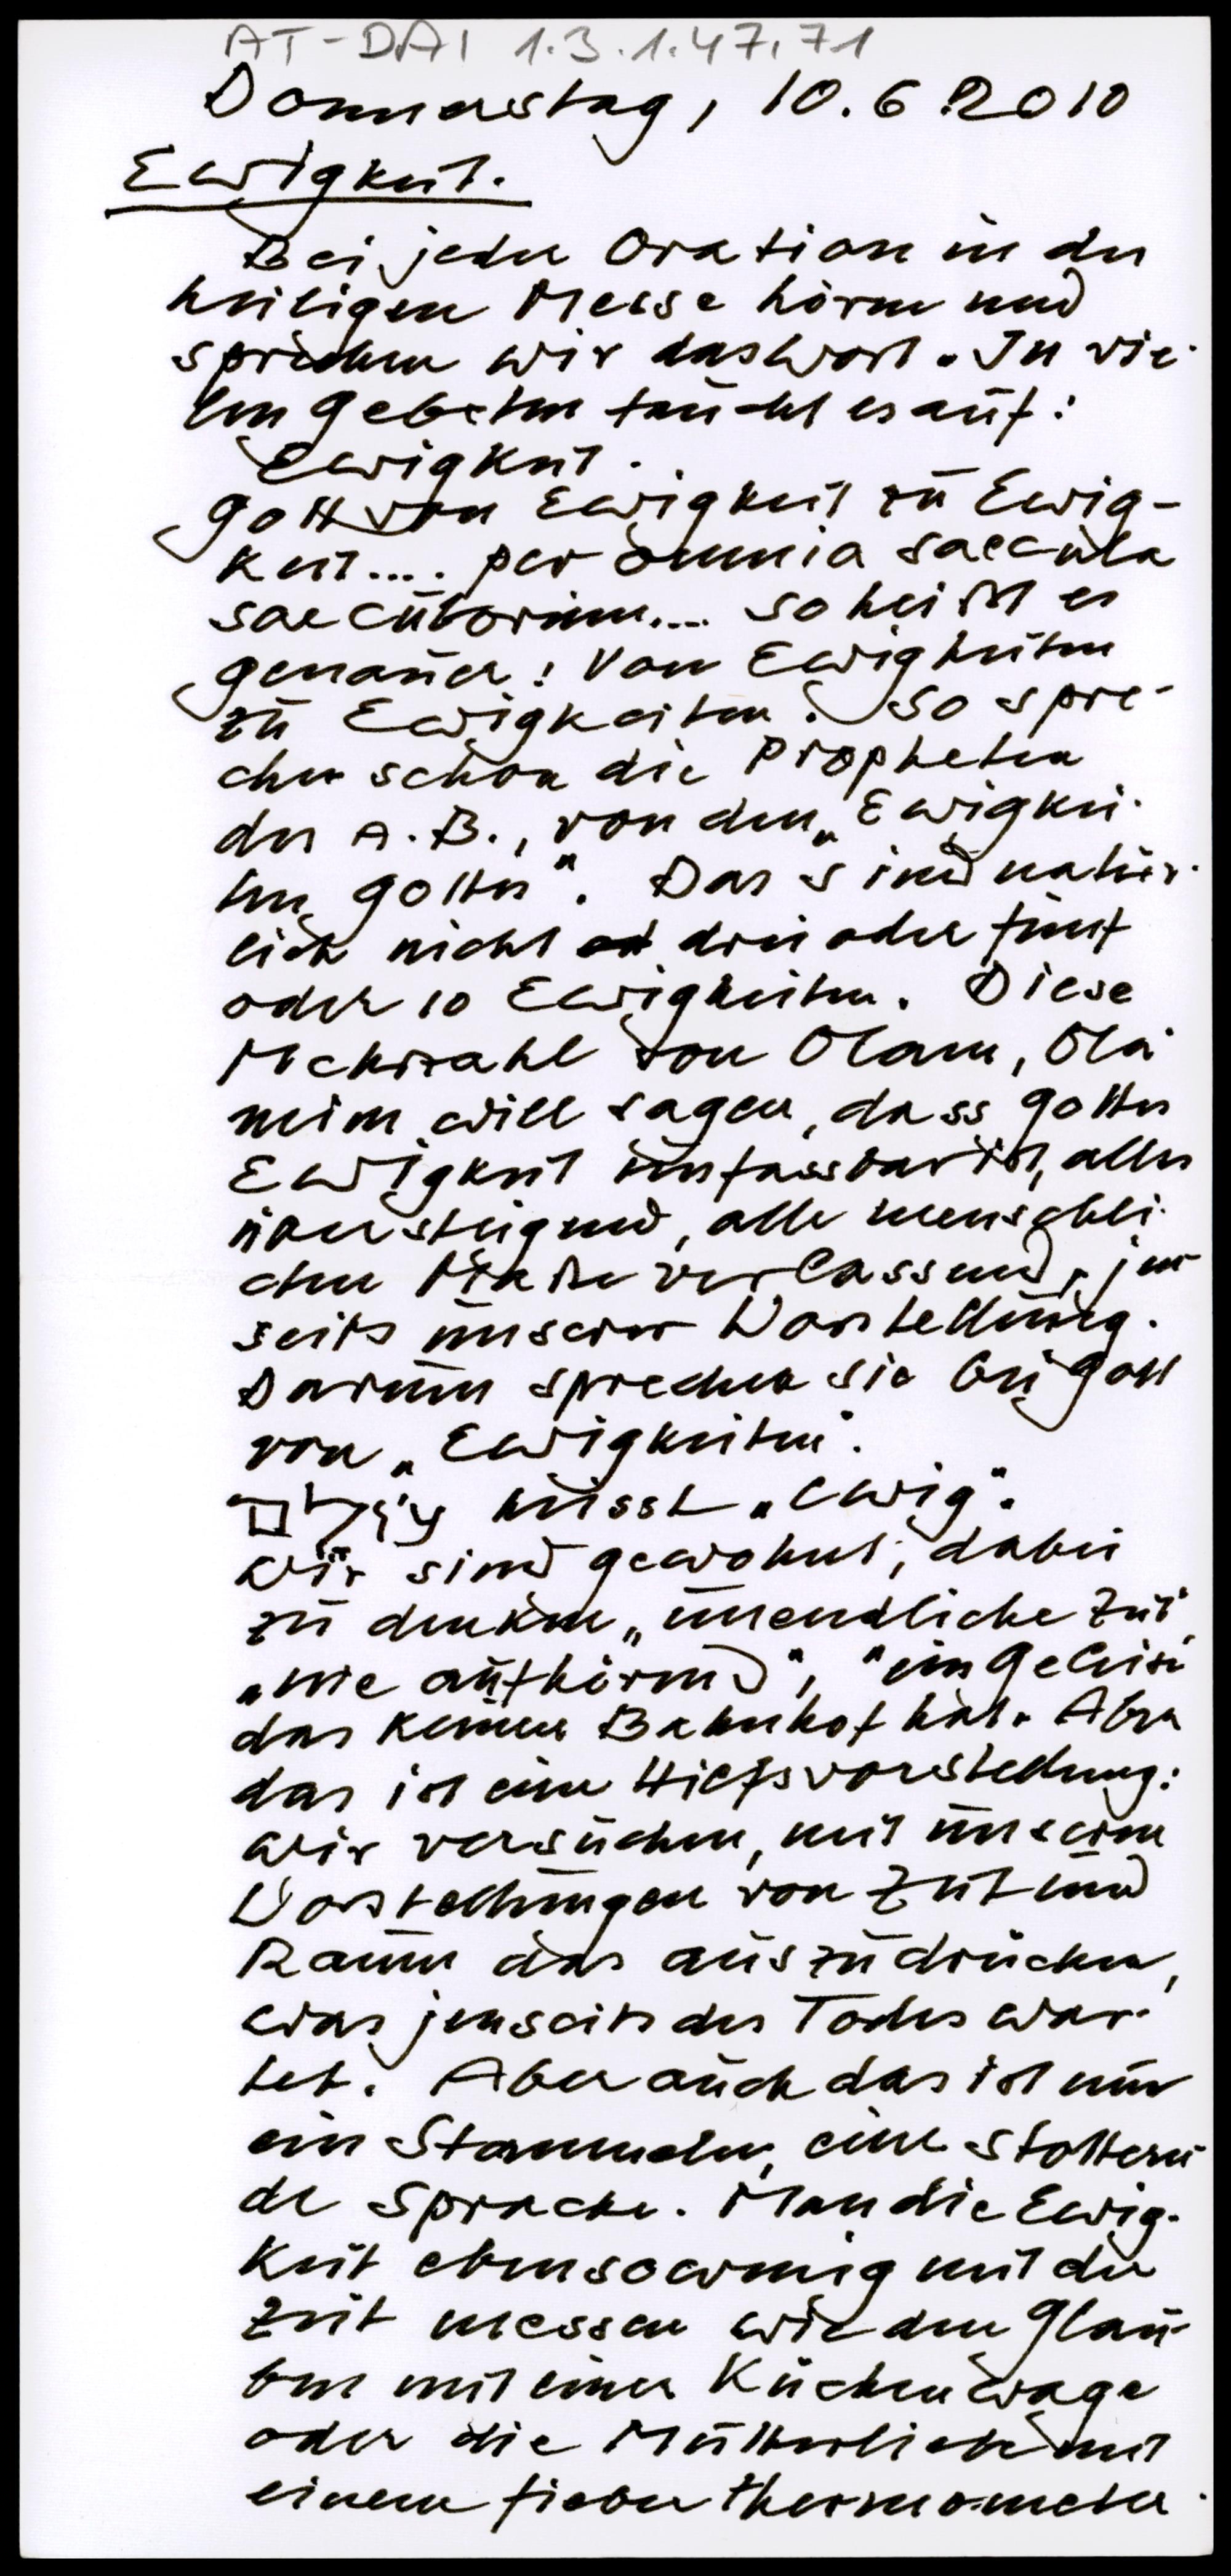 AT-DAI 1.3.1.47.71
Donnerstag, 10.6.2010
Ewigkeit.
Bei jeder Oration in der
heiligen Messe hören und
sprechen wir das Wort. In vie-
len Gebeten taucht es auf:
Ewigkeit.
Gott von Ewigkeit zu Ewig-
keit.... per omnia saecula
saeculorum.... so heißt es
genauer: Von Ewigkeiten
zu Ewigkeiten. So spre-
chen schon die Propheten
des A.B., von den „Ewigkei-
ten Gottes". Das sind natür-
lich nicht drei oder fünf
oder 10 Ewigkeiten. Diese
Mehrzahl von Olam, Ola
meim will sagen, dass Gottes
Ewigkeit unfassbar ist, alles
übersteigend, alle menschli-
chen Maße verlassend, jen-
seits unserer Vorstellung.
Darum sprechen sie bei Gott
von „Ewigkeiten".
עולם heisst „ewig".
Wir sind gewohnt, dabei
zu denken „unendliche Zeit,
„nie aufhörend", "ein Geleise
das keinen Bahnhof hat. Aber
das ist eine Hilfsvorstellung:
Wir versuchen, mit unseren
Vorstellungen von Zeit und
Raum das auszudrücken,
was jenseits des Todes war-
tet. Aber auch das ist nur
ein Stammeln, eine stottern-
de Sprache. Man die Ewig-
keit ebensowenig mit der
Zeit messen wie den Glau-
ben mit einer Küchenwage
oder die Mutterliebe mit
einem Fieberthermometer.